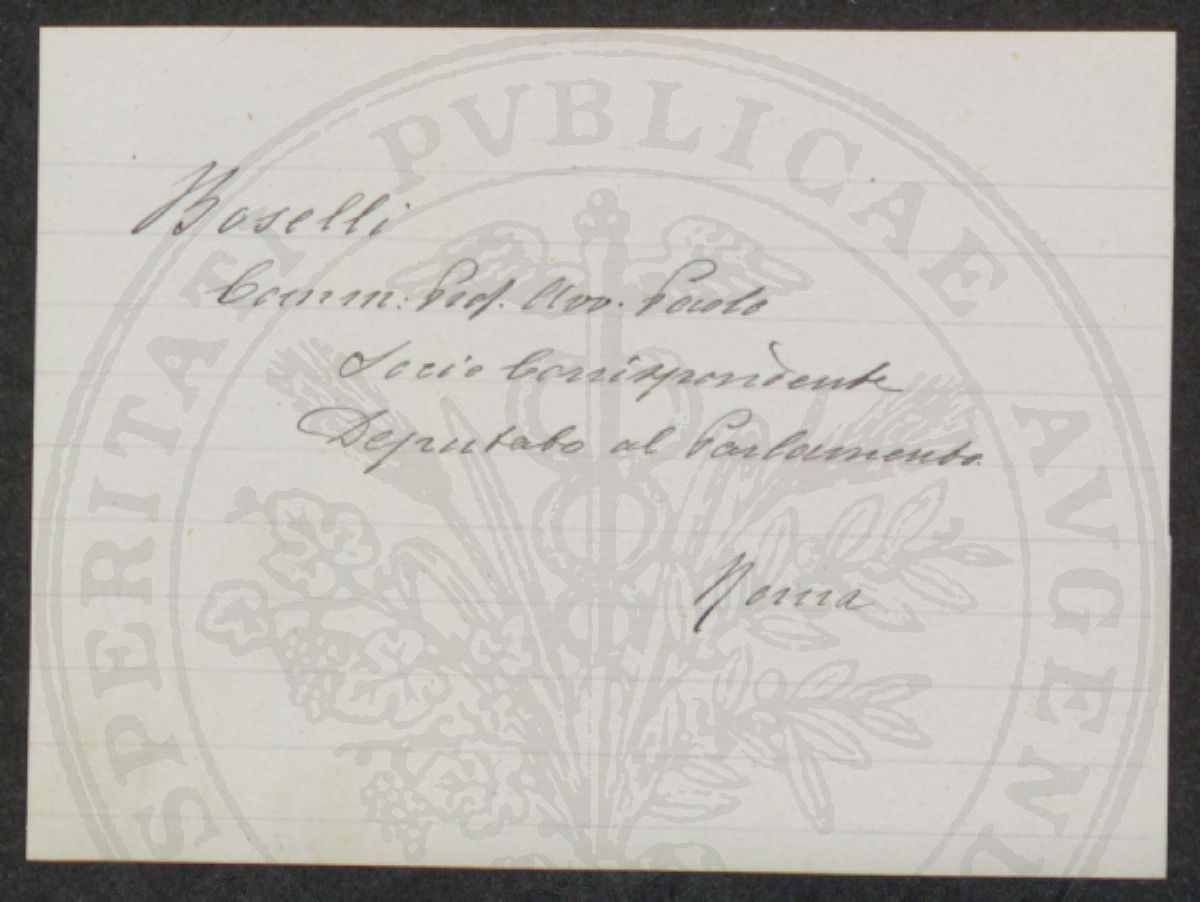 Boselli
Comm: Prof. Avv. Paolo
Socio Corrispondente
Deputato al Parlamento
Roma
PROSPERITATI PVBLICAE AVGENDAE